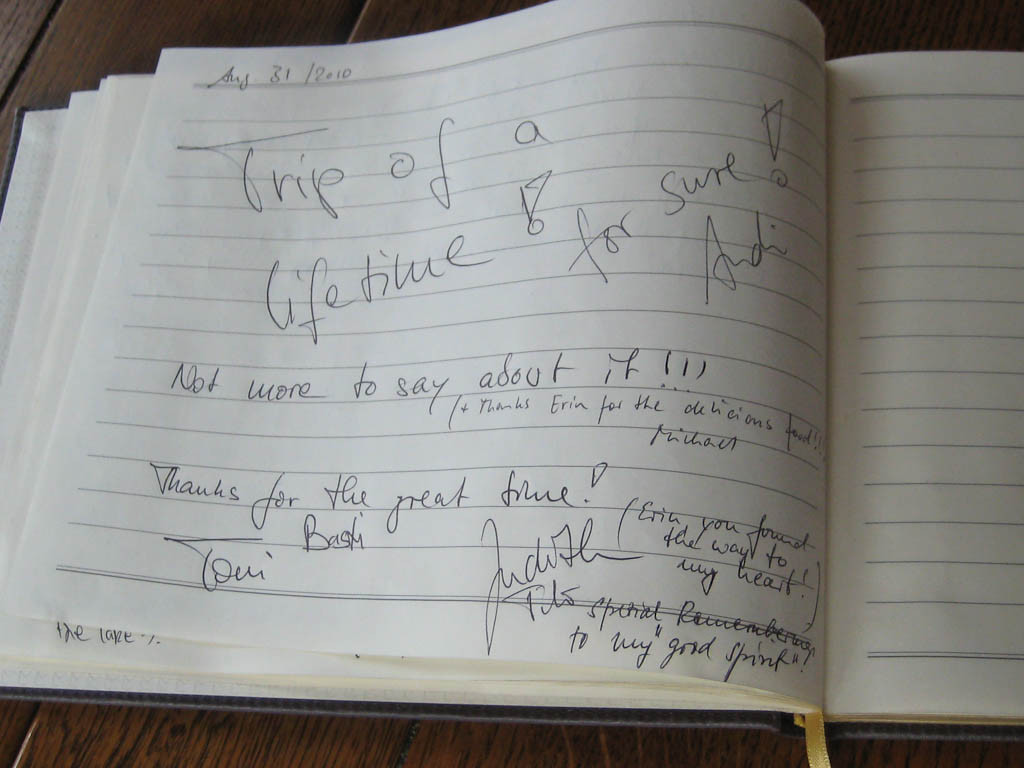 Aug 31/2010
Trip of a
lifetime! for sure!
Andi
Not more to say about it!!!
(+ Thanks Erin for the delicious food!!
Michael
Thanks for the great time!
Basti
Toni
Judith
(Erin you found
the way to
my heart!)
Tito special Remembering
to my "good spirit"!
the lake